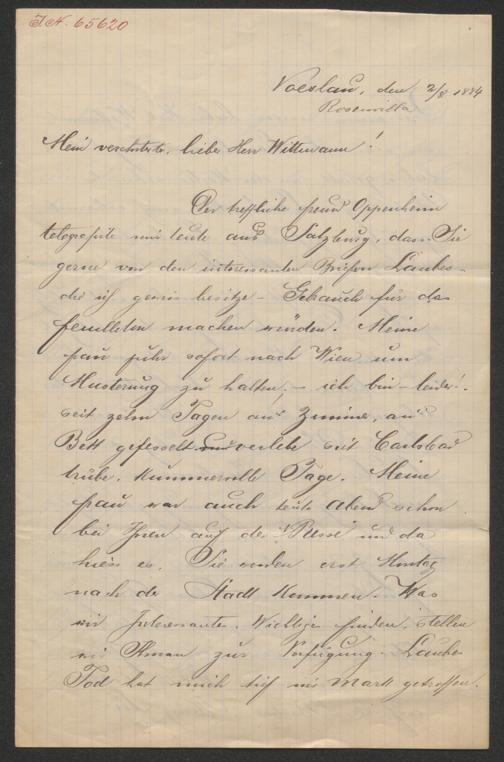 J.N. 65620
Voeslau, den 2/8 1884
Rosenvilla
Mein verehrter, lieber Herr Wittmann!
Der treffliche Freund Oppenheim
telegrafirte mir heute aus Salzburg, dass Sie
gerne von den interessanten Briefen Laubes –
die ich gewis besitze – Gebrauch für das
Feuilleton machen würden. Meine
Frau fuhr sofort nach Wien um
Musterung zu halten, – ich bin – leider! –
seit zehn Tagen an's Zimmer, an's
Bett gefesselt und verlebe seit Carlsbad
trübe, kummervolle Tage. Meine
Frau war auch heute Abend schon
bei Ihnen auf der "Presse" und da
hiess es, Sie werden erst Montag
nach der Stadt kommen. Was
wir Interessantes, Wichtiges finden, stellen
wir Ihnen zur Verfügung. Laubes
Tod hat mich tief in's Mark getroffen.